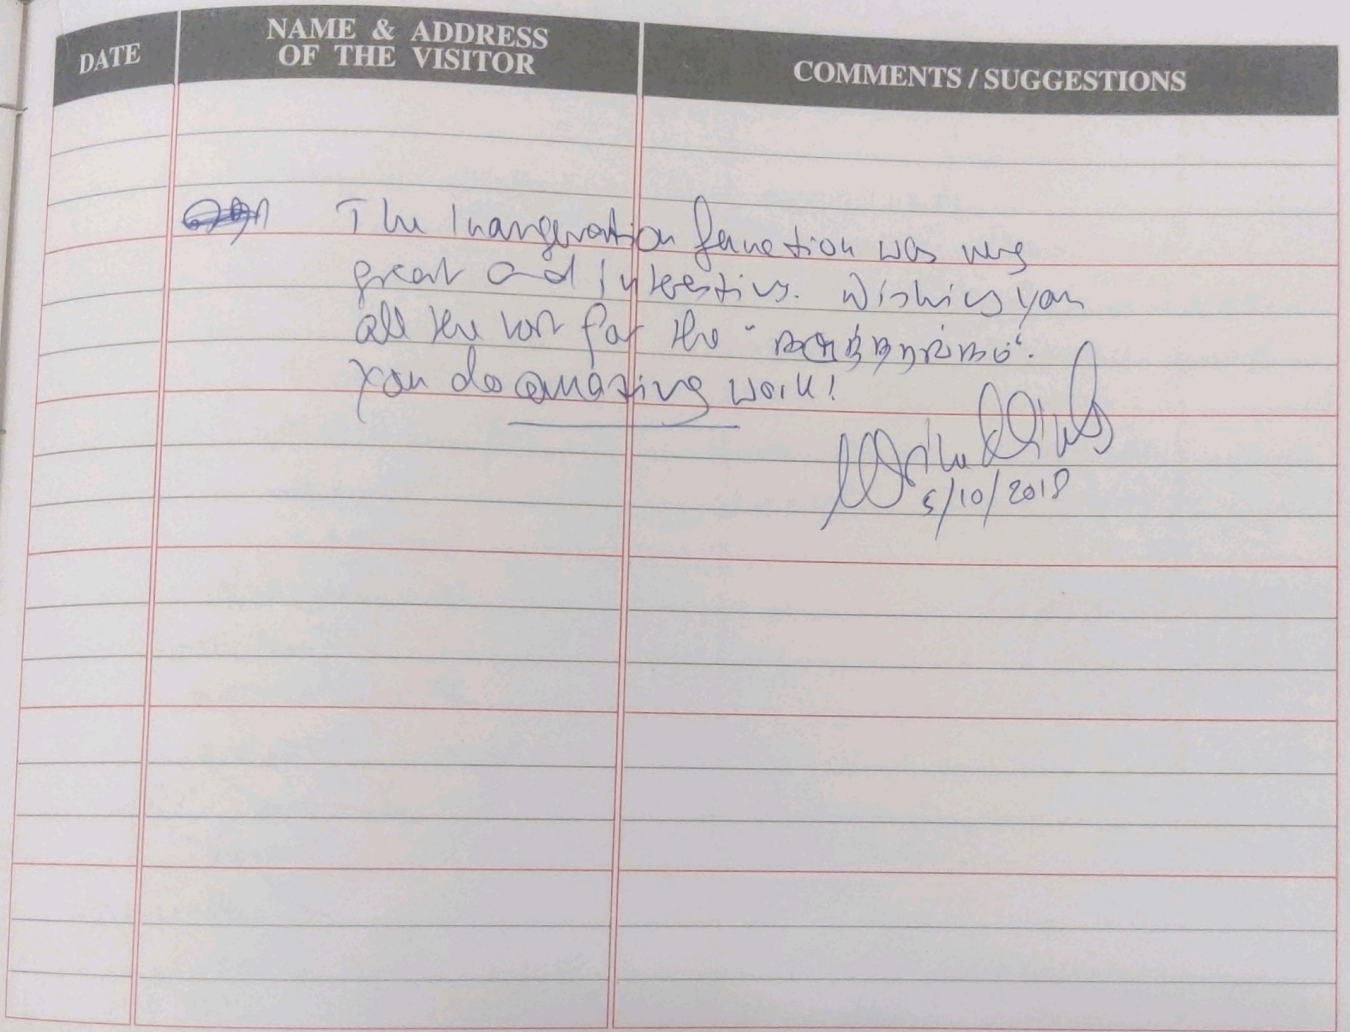 DATE
NAME & ADDRESS
OF THE VISITOR
COMMENTS / SUGGESTIONS
The Inangeration function was very
great and interesting. Wishing you
all the best for the
You do amazing work!
5/10/2018